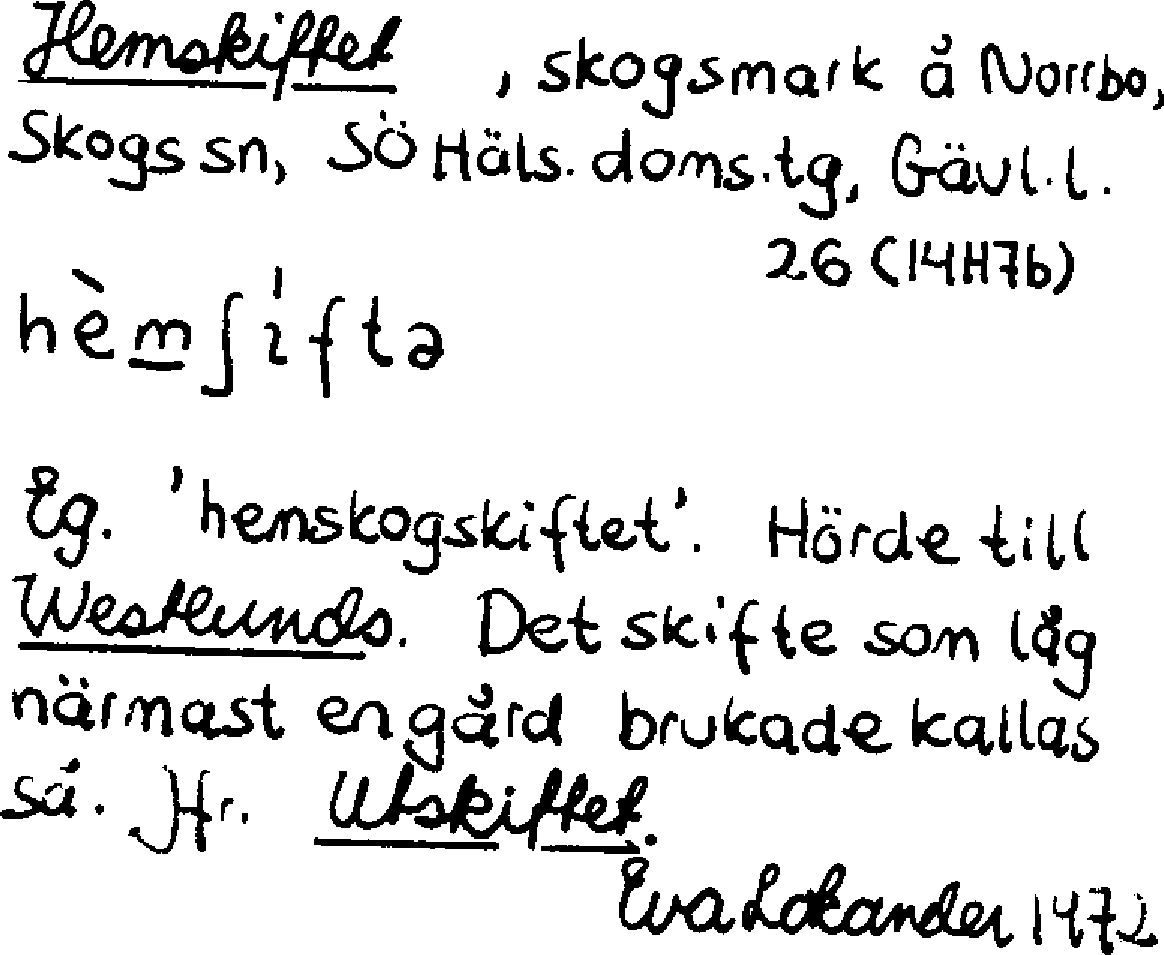 Hemskiftet, skogsmark å Norrbo,
Skogs sn, SÖ Häls. doms.tg, Gävl.l.
26 (14H7b)
hèmʃìftə
Eg. 'hemskogskiftet'. Hörde till
Westlunds. Det skifte som låg
närmast en gård brukade kallas
så. Jfr. Utskiftet.
Eva Lokander 1972